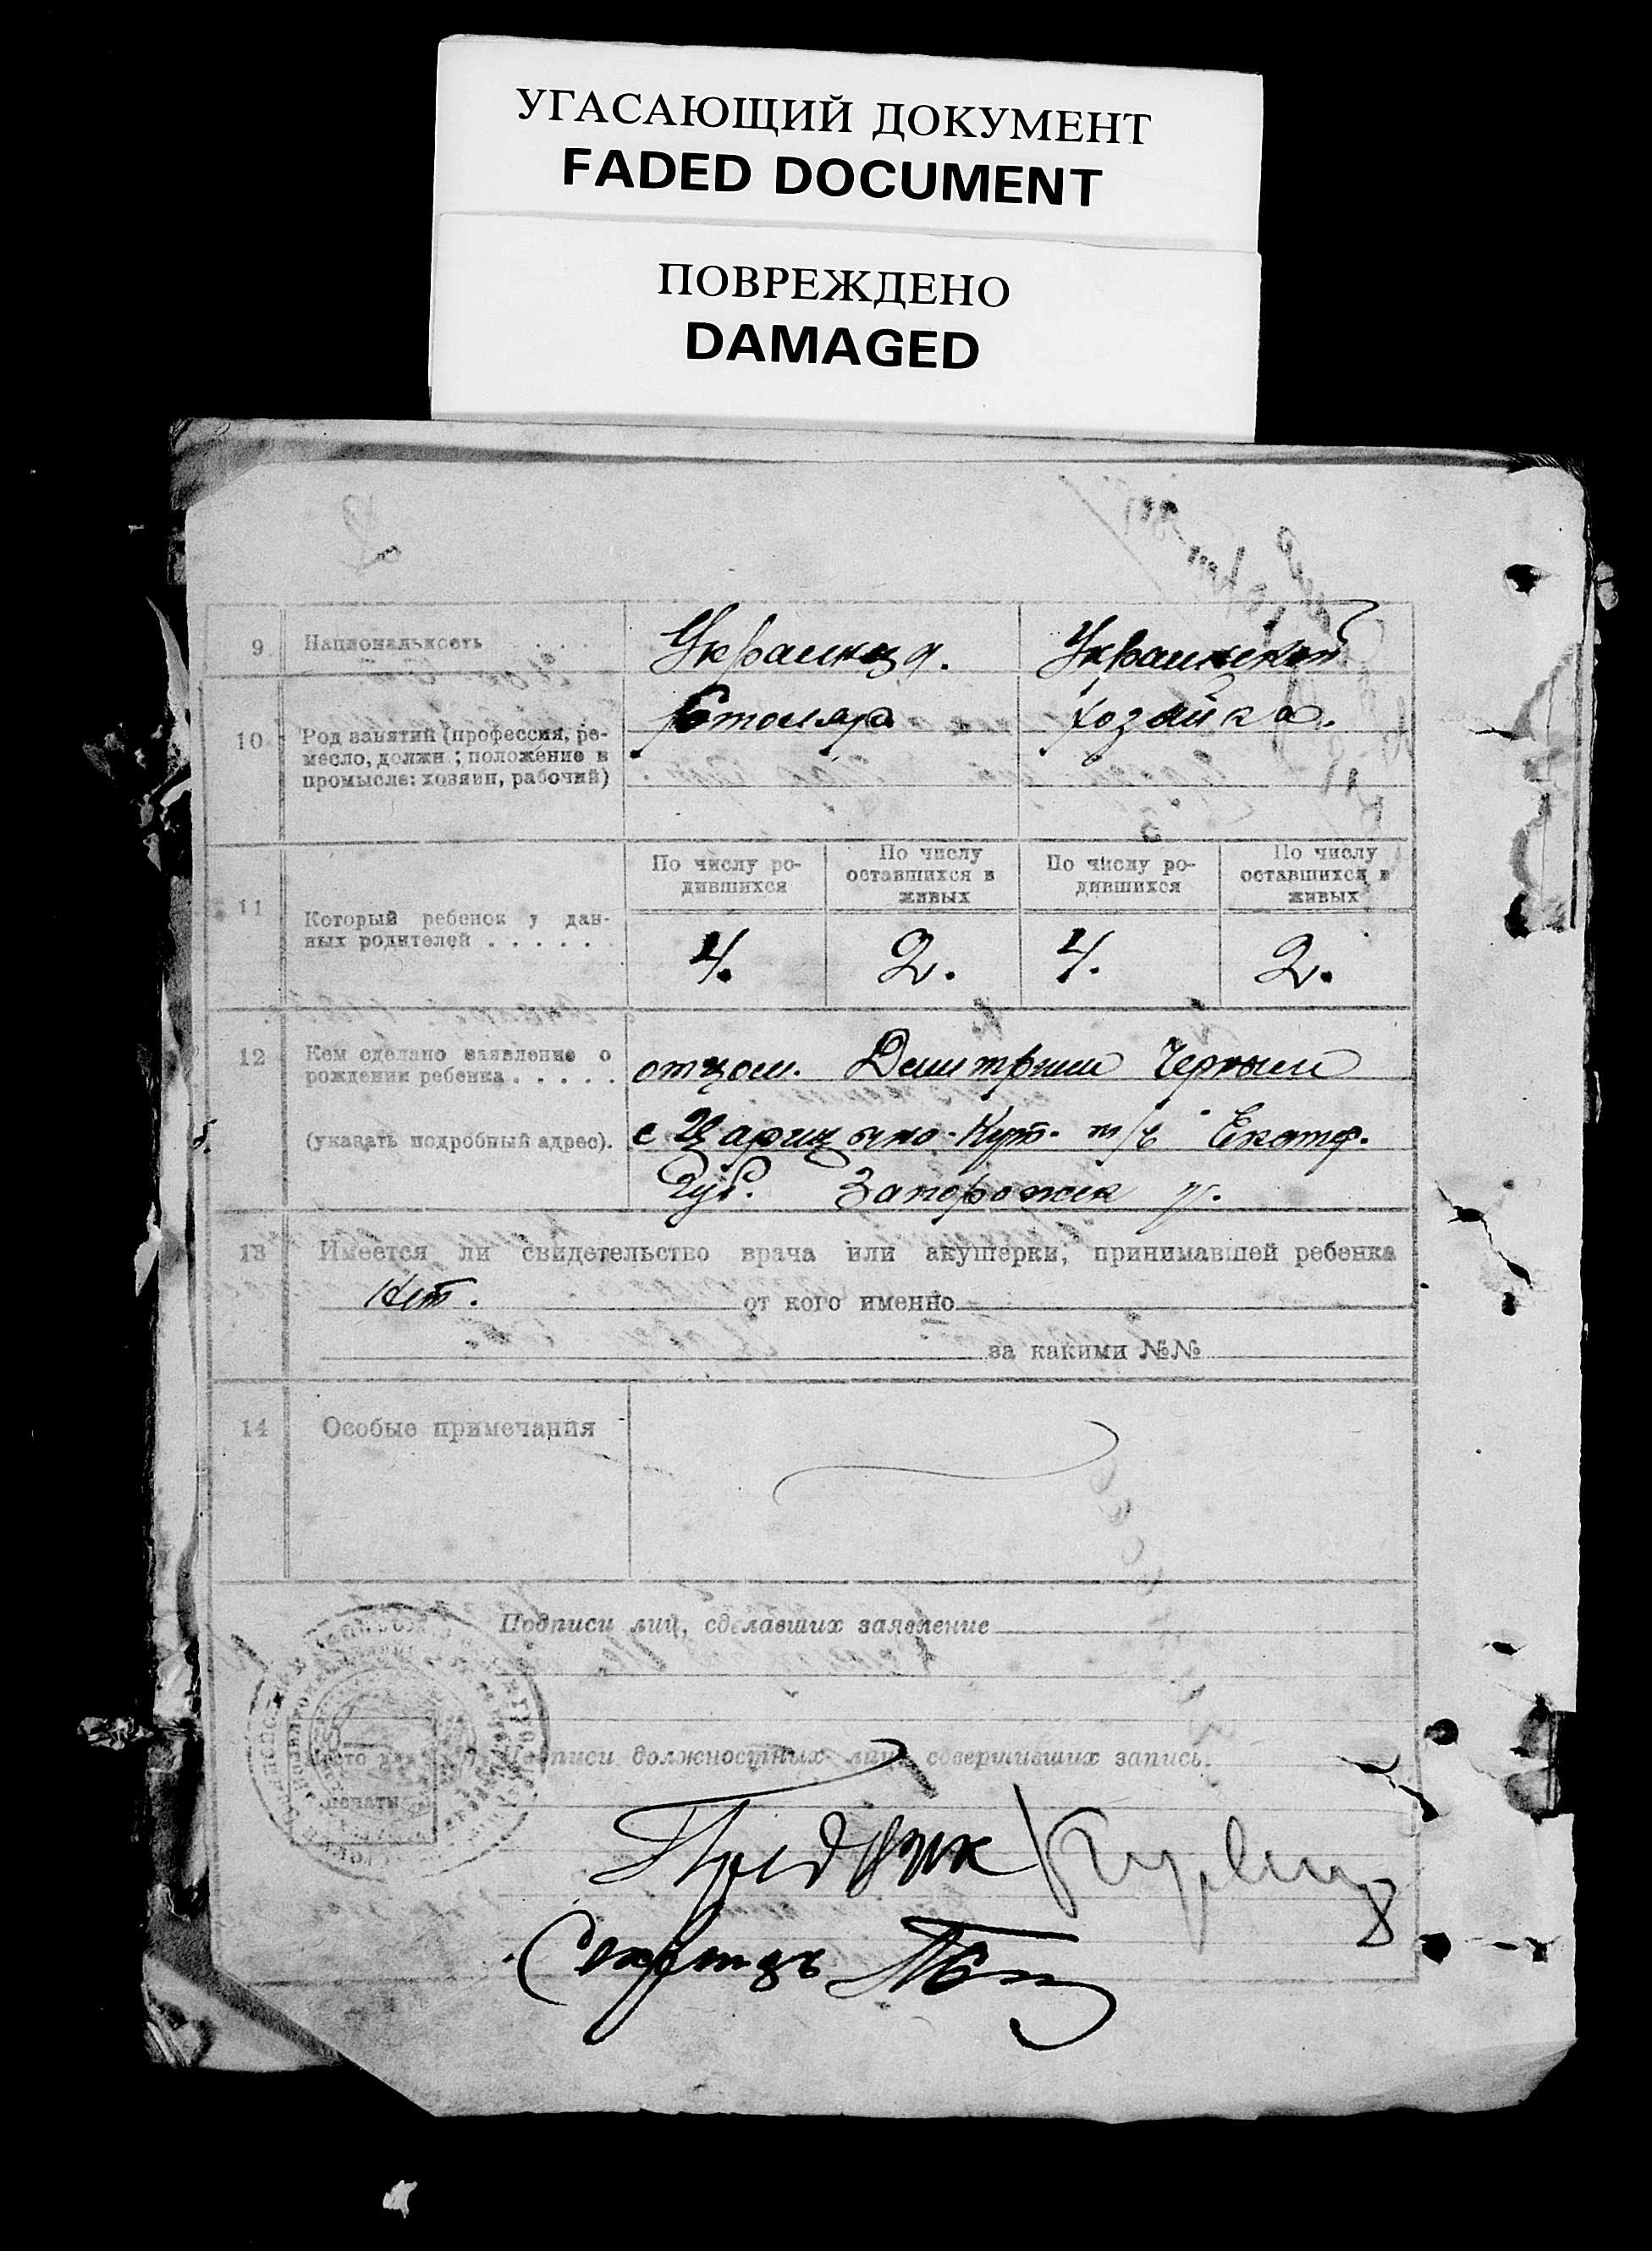 УГАСАЮЩИЙ ДОКУМЕНТ
FADED DOCUMENT
ПОВРЕЖДЕНО
DAMAGED
9 Национальность
Украинца. Украинской
10 Род занятий (профессия, ре-
месло, должн.; положение в
промысле: хозяин, рабочий)
Столяра хозяйка.
11 Который ребенок у дан-
ных родителей . . . . . .
По числу ро-
дившихся
По числу
оставшихся в
живых
По числу ро-
дившихся
По числу
оставшихся в
живых
4. 2. 4. 2.
12 Кем сделано заявление о
рождении ребенка . . . . .
(указать подробный адрес).
отцом. Дмитрием Черным
с Царицыно-Кут. Екатер.
Губ. Запорожск у.
13 Имеется ли свидетельство врача или акушерки, принимавшей ребенка
Нет. от кого именно
за какими №№
14 Особые примечания
Подписи лиц, сделавших заявление
Место для
печати
Подписи должностных лиц, совершивших запись.
Предвик
Секретарь